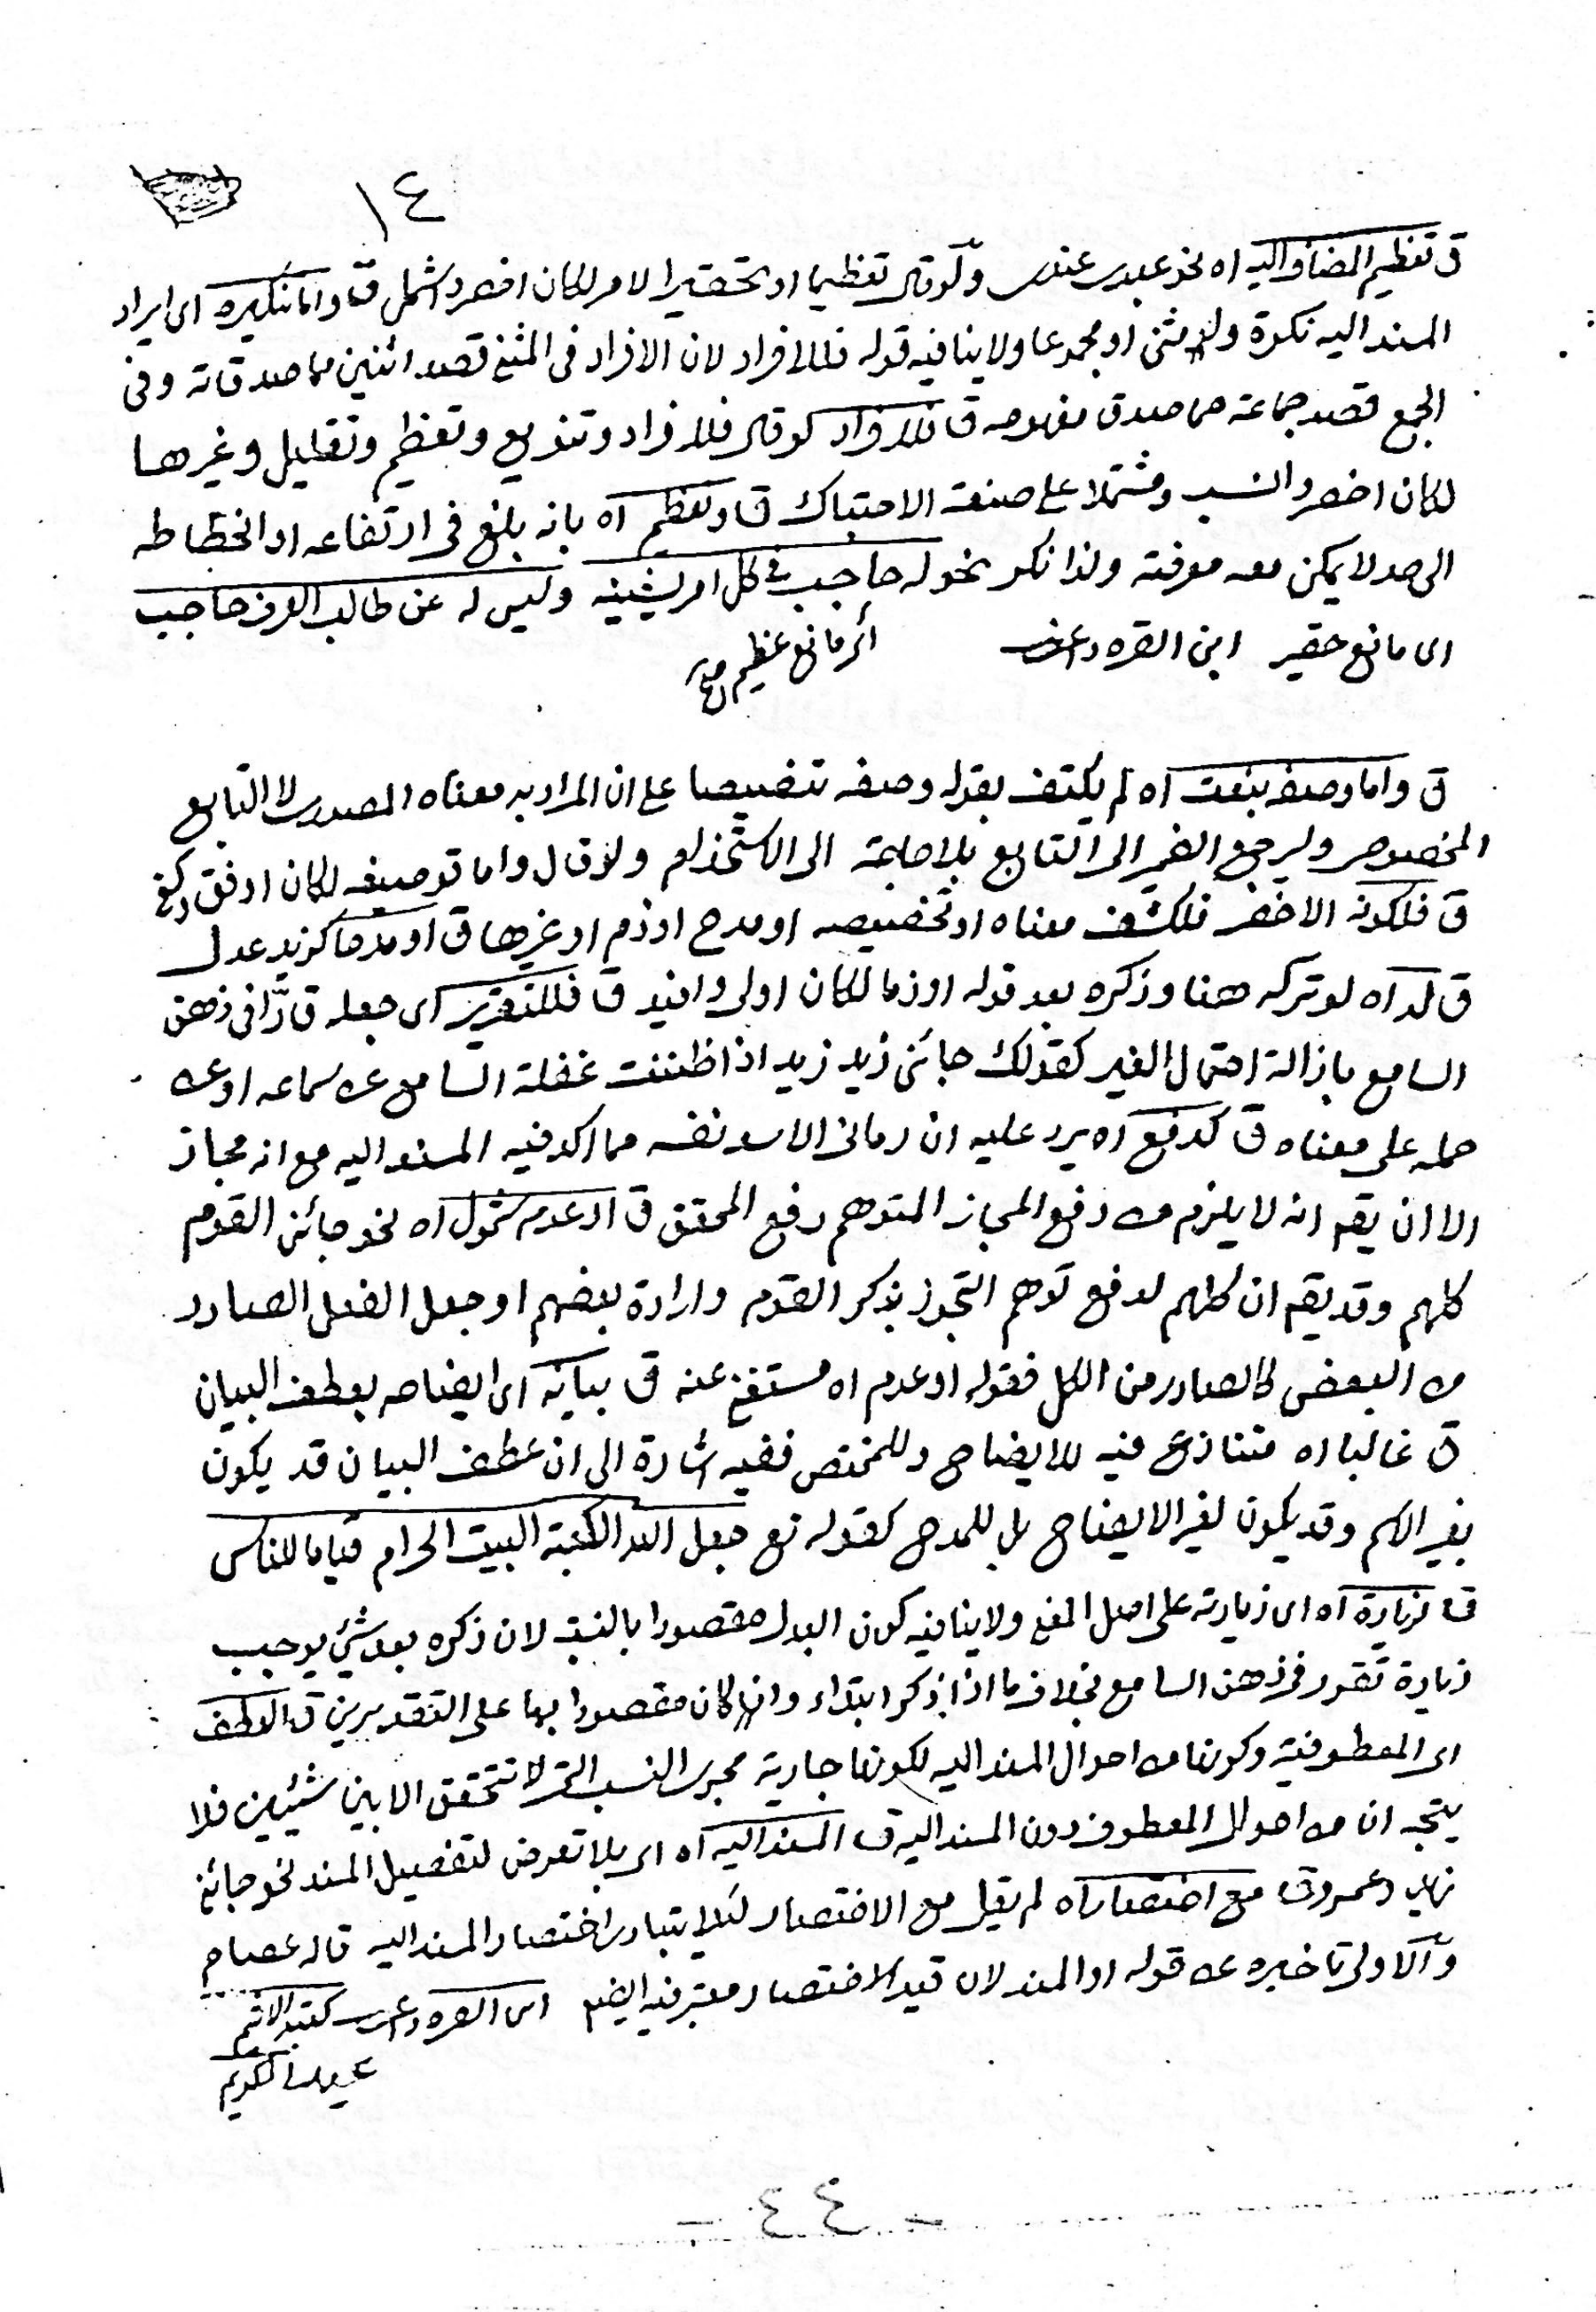 ١٤
ق تعظيم المضاف اليه اه نحو عبدى عندى ولو قال تعظيما او تحقيرا لامر لكان اخصر واشمل ق واما تنكيره اى ايراد
المسند اليه نكرة ولو مثنى او مجموعا ولا ينافيه قوله فللافراد لان الافراد فى المثنى قصد اثنين مما صدقاته وفى
الجمع قصد جماعة مما صدق مفهومه ق فللافراد لو قال فلافراد وتنويع وتعظيم وتقليل وغيرها
لكان اخصر وانسب ومشتملا على صنعة الاحتباك ق او تعظيم اه بانه بلغ فى ارتفاعه او انحطاطه
الى حد لا يمكن معه معرفته ولذا نكر نحو له حاجب فى كل امر يشينه وليس له عن طالب العرف حاجب
اى مانع حقير ابن القره داغى
اى مانع عظيم منه
ق واما وصفه بنعت اه لم يكتف بقوله وصفه تنصيصا على ان المراد به معناه المصدرى لا التابع
المخصوص وليرجع الضمير الى التابع بلا حاجة الى الاستخدام ولو قال واما توصيفه لكان اوفق
ق فلكونه الاخصر فلكشف معناه او تخصيصه او مدح او ذم او غيرها ق او مدحا كزيد عدل
ق له اه لو تركه هنا وذكره بعد قوله او ذما لكان اولى وافيد ق فللتقرير اى جعله قارّا فى ذهن
السامع بازالة احتمال الغير كقولك جائنى زيد زيد اذا ظننت غفلة السامع عن سماعه او عن
حمله على معناه ق كدفع اه يرد عليه ان رمانى الاسد نفسه مما اكد فيه المسند اليه مع انه مجاز
الا ان يقم انه لا يلزم من دفع المجاز المتوهم رفع المحقق ق او عدم شمول اه نحو جائنى القوم
كلهم وقد يقم ان كلهم لدفع توهم التجوز بذكر القوم وارادة بعضهم او جعل الفعل الصادر
من البعض كالصادر من الكل فقوله او عدم اه مستغنى عنه ق بيانه اى ايضاحه بعطف البيان
ق غالبا اه متنازع فيه للايضاح وللمختص ففيه اشارة الى ان عطف البيان قد يكون
بغير الاسم وقد يكون لغير الايضاح بل للمدح كقوله تع جعل الله الكعبة البيت الحرام قياما للناس
ق لزيادة اه اى زيادته على اصل المعنى ولا ينافيه كون البدل مقصودا بالنسبة لان ذكره بعد شيئ يوجب
زيادة تقرر فى ذهن السامع بخلاف ما اذا ذكر ابتداء وان كان مقصودا بها على التقديرين ق العطف
اى المعطوفية وكونها من احوال المسند اليه لكونها جارية مجرى النسب التى لا تتحقق الا بين شيئين فلا
يتجه انه من احوال المعطوف دون المسند اليه ق المسند اليه اه اى بلا تعرض لتفصيل المسند نحو جائنى
زيد وعمرو ق مع اختصار اه لم يقل مع الاختصار لئلا يتبادر اختصار المسند اليه قاله عصام
والاولى تاخيره عن قوله او المسند لان قيد الاختصار معتبر فيه ايضم ابن القره داغى كتبه الاثم
عبد الكريم
- ٤٤ -